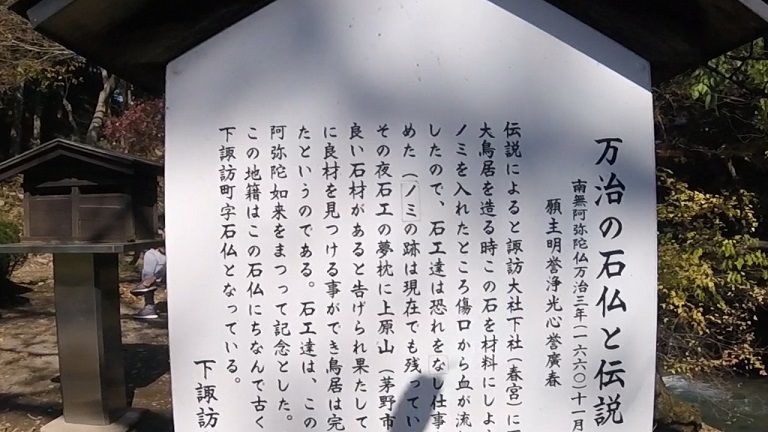 万治の石仏と伝説
南無阿弥陀仏万治三年(一六六〇)十一月
願主明誉浄光心誉廣春
伝説によると諏訪大社下社(春宮)に
大鳥居を造る時この石を材料にしよ
ノミを入れたところ傷口から血が流
したので、石工達は恐れをなし仕事
めた(ノミの跡は現在でも残ってい
その夜石工の夢枕に上原山(茅野市
良い石材があると告げられ果たして
に良材を見つける事ができ鳥居は完
たというのである。石工達は、この
阿弥陀如来をまつって記念とした。
この地籍はこの石仏にちなんで古く
下諏訪町字石仏となっている。
下諏訪